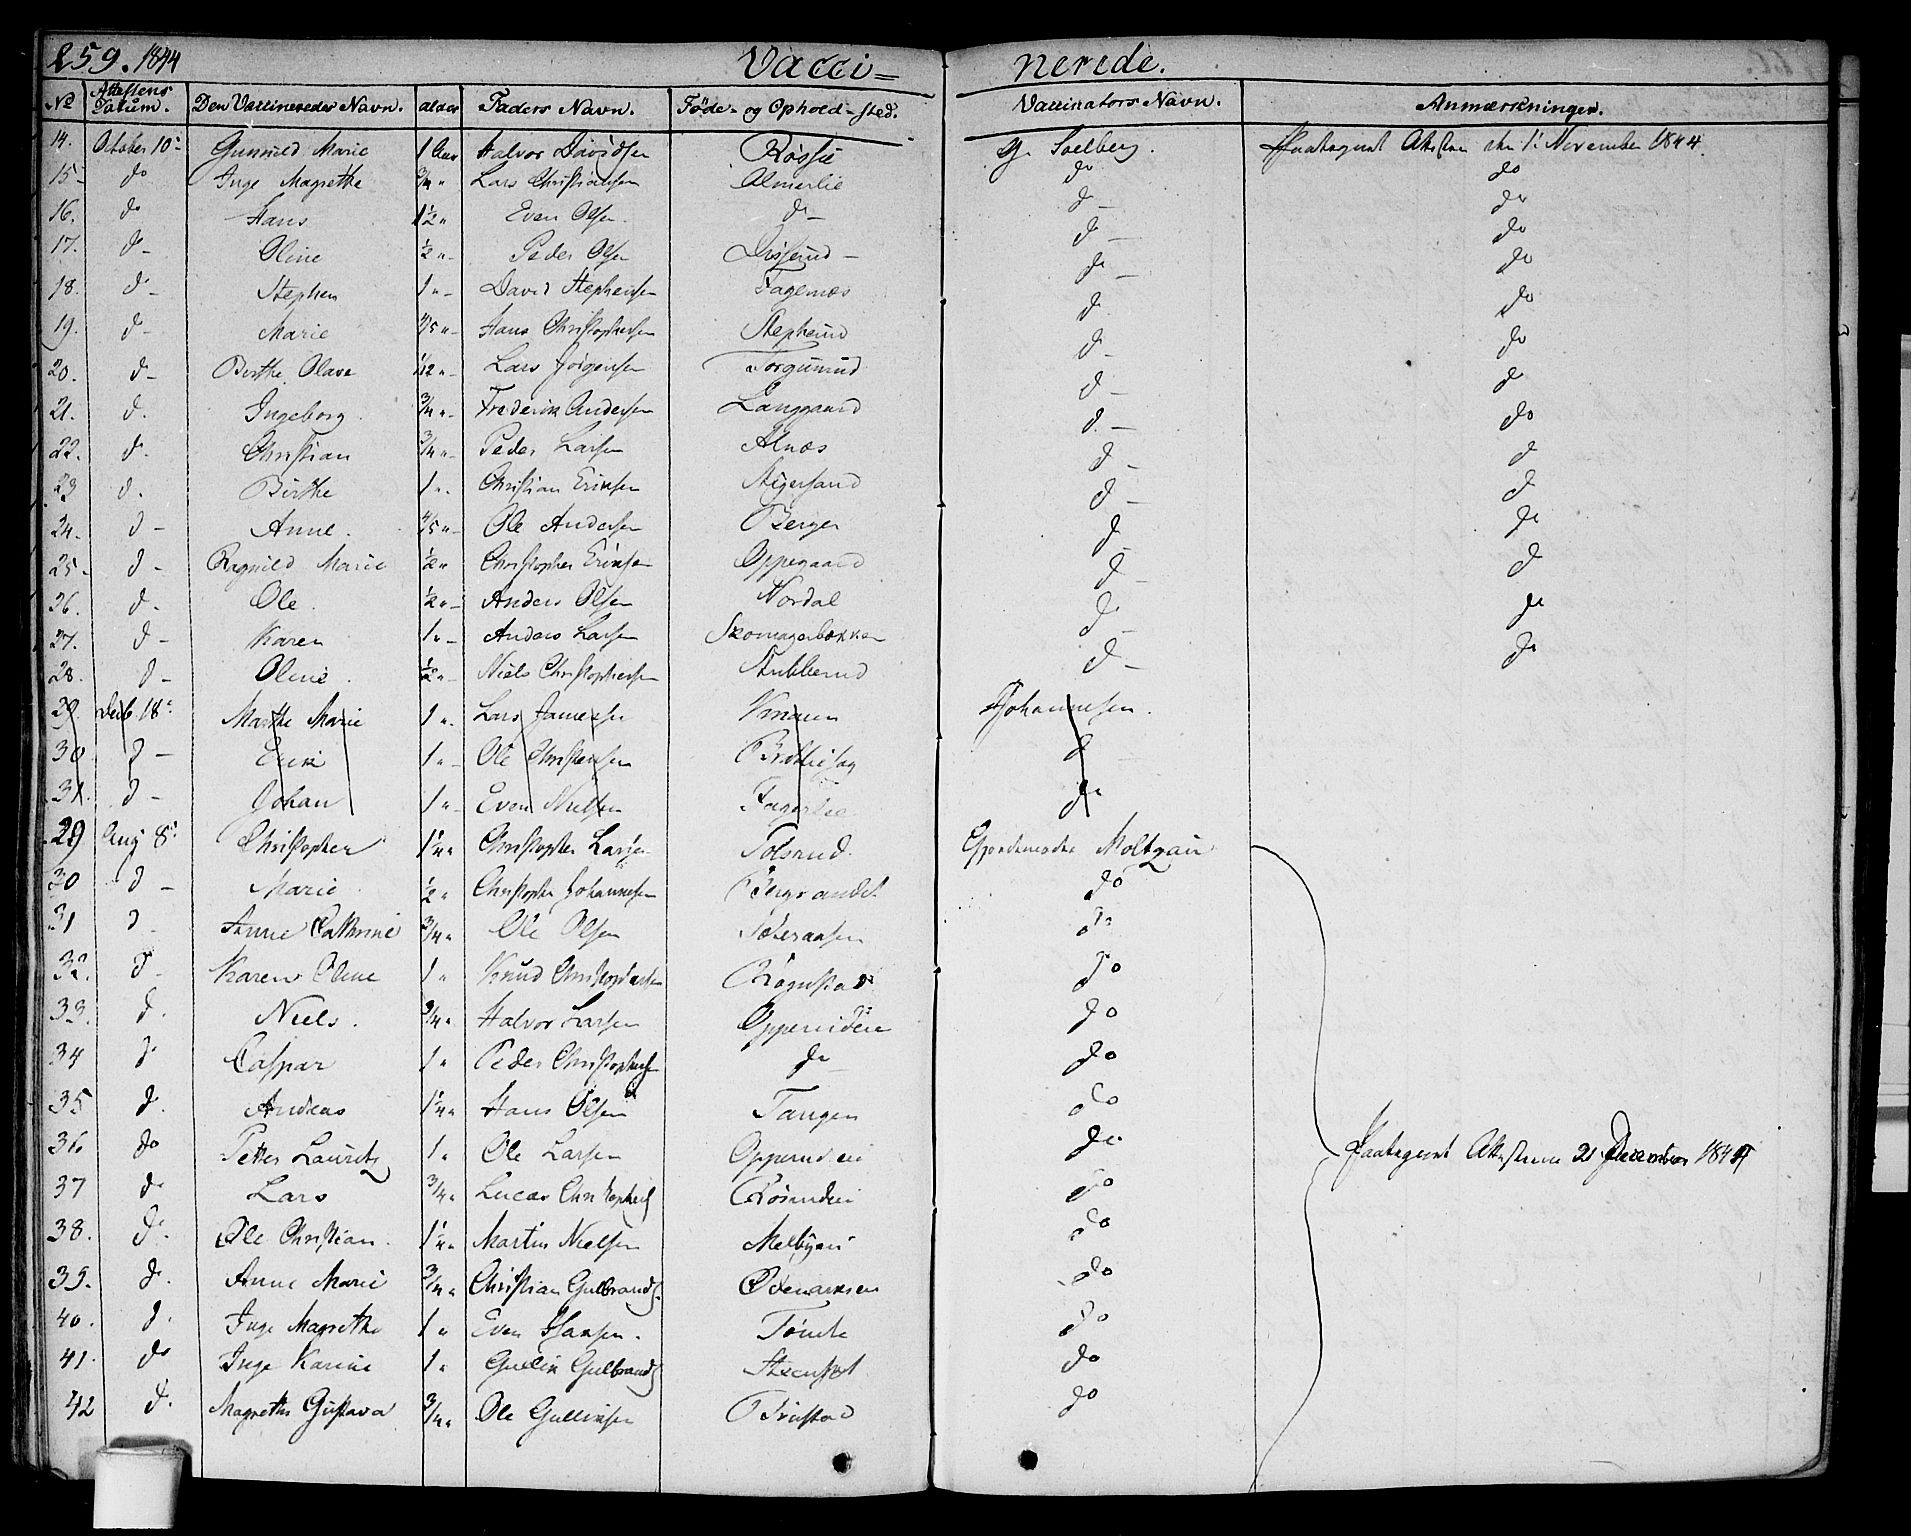 259. 1844 Vacci= nerede.
No Attestens Datum. Den Vaccineredes Navn. alder Faders Navn. Føde- og Ophold-sted. Vaccinators Navn. Anmærkninger.
14. October 10 Gunnild Marie 1 Aar Halvor Davidsen G. Soelberg. Paategnet Attesten den 1 November 1844.
15 do Inge Magrethe 3/4 " Lars Christiansen Almerlie do do
16. do Hans 1 1/2 " Even Olsen. do d do
17. d Oline 1/2 " Peder Olsen d do
18. d Stephen 1 " David Stephensen Fagernæs do do
19. d Marie 4/5 " Hans Christophersen Stepherud d do
20. d Birthe Olava 1/12 " Lars Jørgensen Torgunrud d do
21. d. Ingeborg. 3/4 " Frederik Andersen Langgaard d do
22. d. Christian 3/4 " Peder Larsen Alnæs d. do
23 d. Birthe 1 " Christian Eriksen d d
24. d Anne. 4/5 " Ole Andersen Berger d d
25 d Ragnild Marie 1/2 " Christopher Eriksen Oppegaard d do
26. d. Ole. 1/2 " Anders Olsen Nordal d d
27. d Karen 1 " Anders Larsen Skomagerbækken d do
28. d Oline. 1/2 " Niels Christophersen Stubberud d do
29 Decb 18 Marthe Marie 1 " Lars Johannesen.
30 d Erik 1 " Ole Christensen d
31. d Johan 1 " Even Nielsen Fagerlie do
29 Aug 8 Christopher 1 1/4 " Christopher Larsen Tolsrud. Gjordemoder Moltzau
30 d Marie 1/2 " Christopher Johannesen do
31 d Anne Cathrine 3/4 " Ole Olsen do
32. d Karen Oline 1 " Knud Christophersen Rognstad do
33. d. Niels. 3/4 " Halvor Larsen Opperudeie do
34 d Caspar 1 " Peder Christophers do do
35 d. Andreas 1 1/4 " Hans Olsen Tangen do
36 do Petter Lauritz 1 " Ole Larsen Opperudeie do Paategnet Attesterne 21 December 1844
37 d Lars 3/4 " Lucas Christophers do
38. d. Ole Christian. 1 1/4 " Martin Nielsen Melbyeie do
39. d. Anne Marie 3/4 " Christian Gulbrands. do
40. d. Inge Magrethe 1 " Even Hansen. Tømte do
41. do Inge Karine 1 " Gullik Gulbrands do
42 d. Magrethe Gustava 3/4 " Ole Gulliksen Trustad do